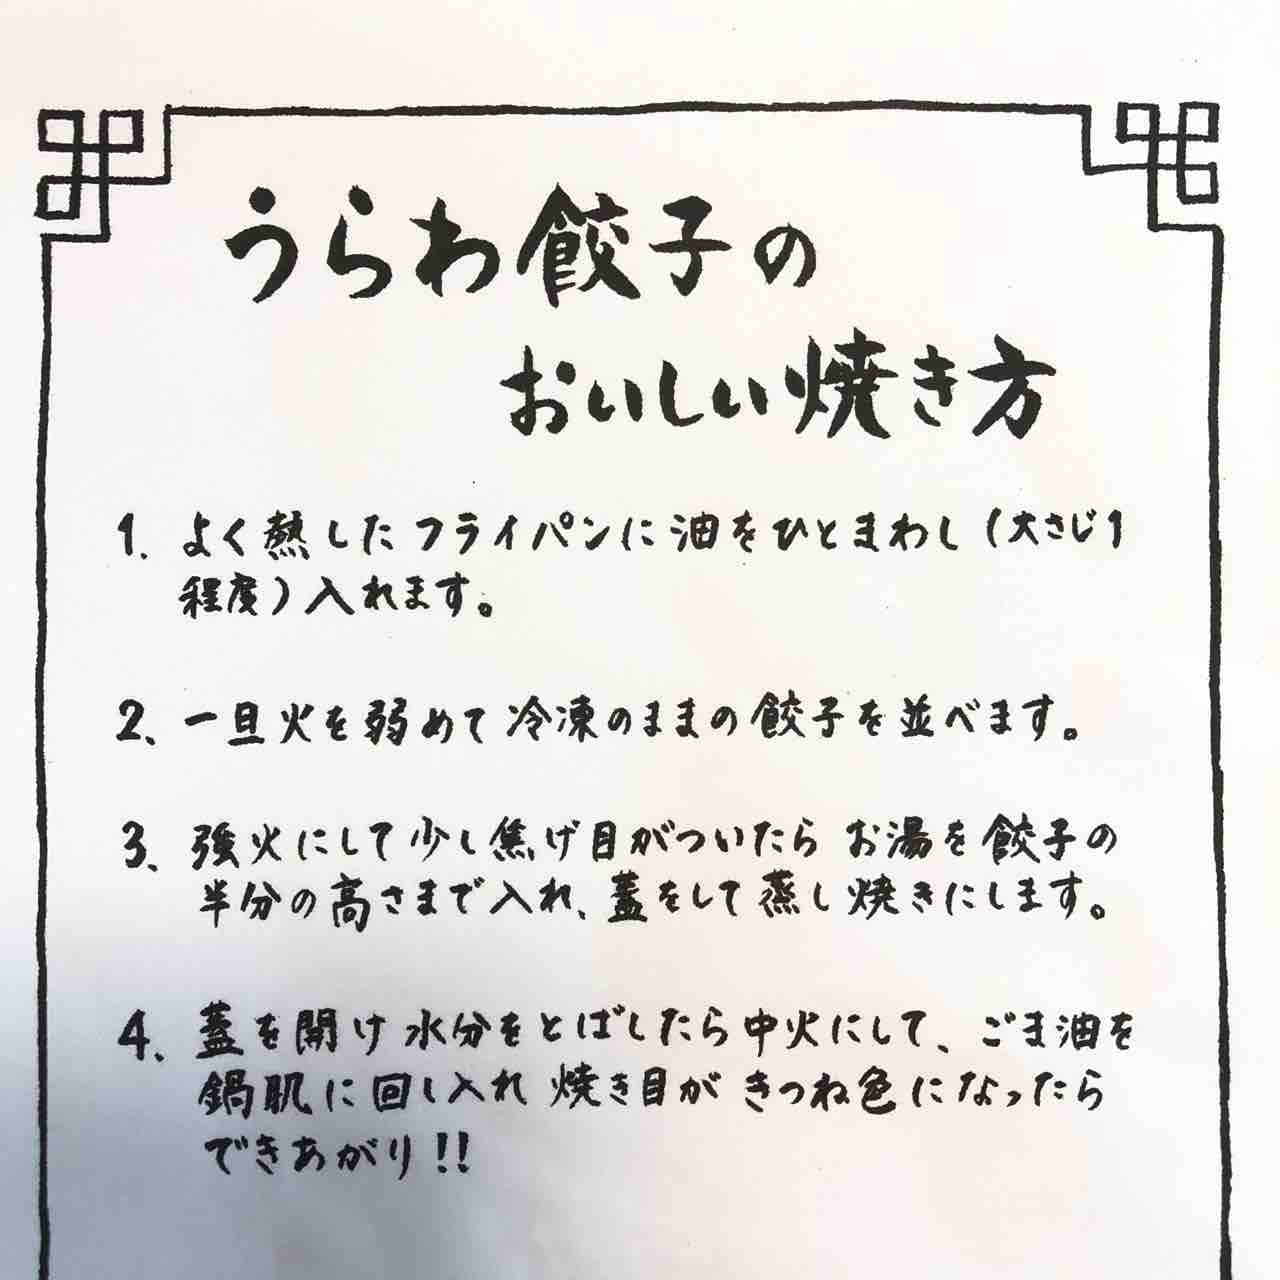 うらわ餃子の
おいしい焼き方
1. よく熱したフライパンに油をひとまわし(大さじ1
程度)入れます。
2、一旦火を弱めて冷凍のままの餃子を並べます。
3、強火にして少し焦げ目がついたら お湯を餃子の
半分の高さまで入れ、蓋をして蒸し焼きにします。
4、蓋を開け 水分をとばしたら中火にして、ごま油を
鍋肌に回し入れ 焼き目が きつね色になったら
できあがり!!